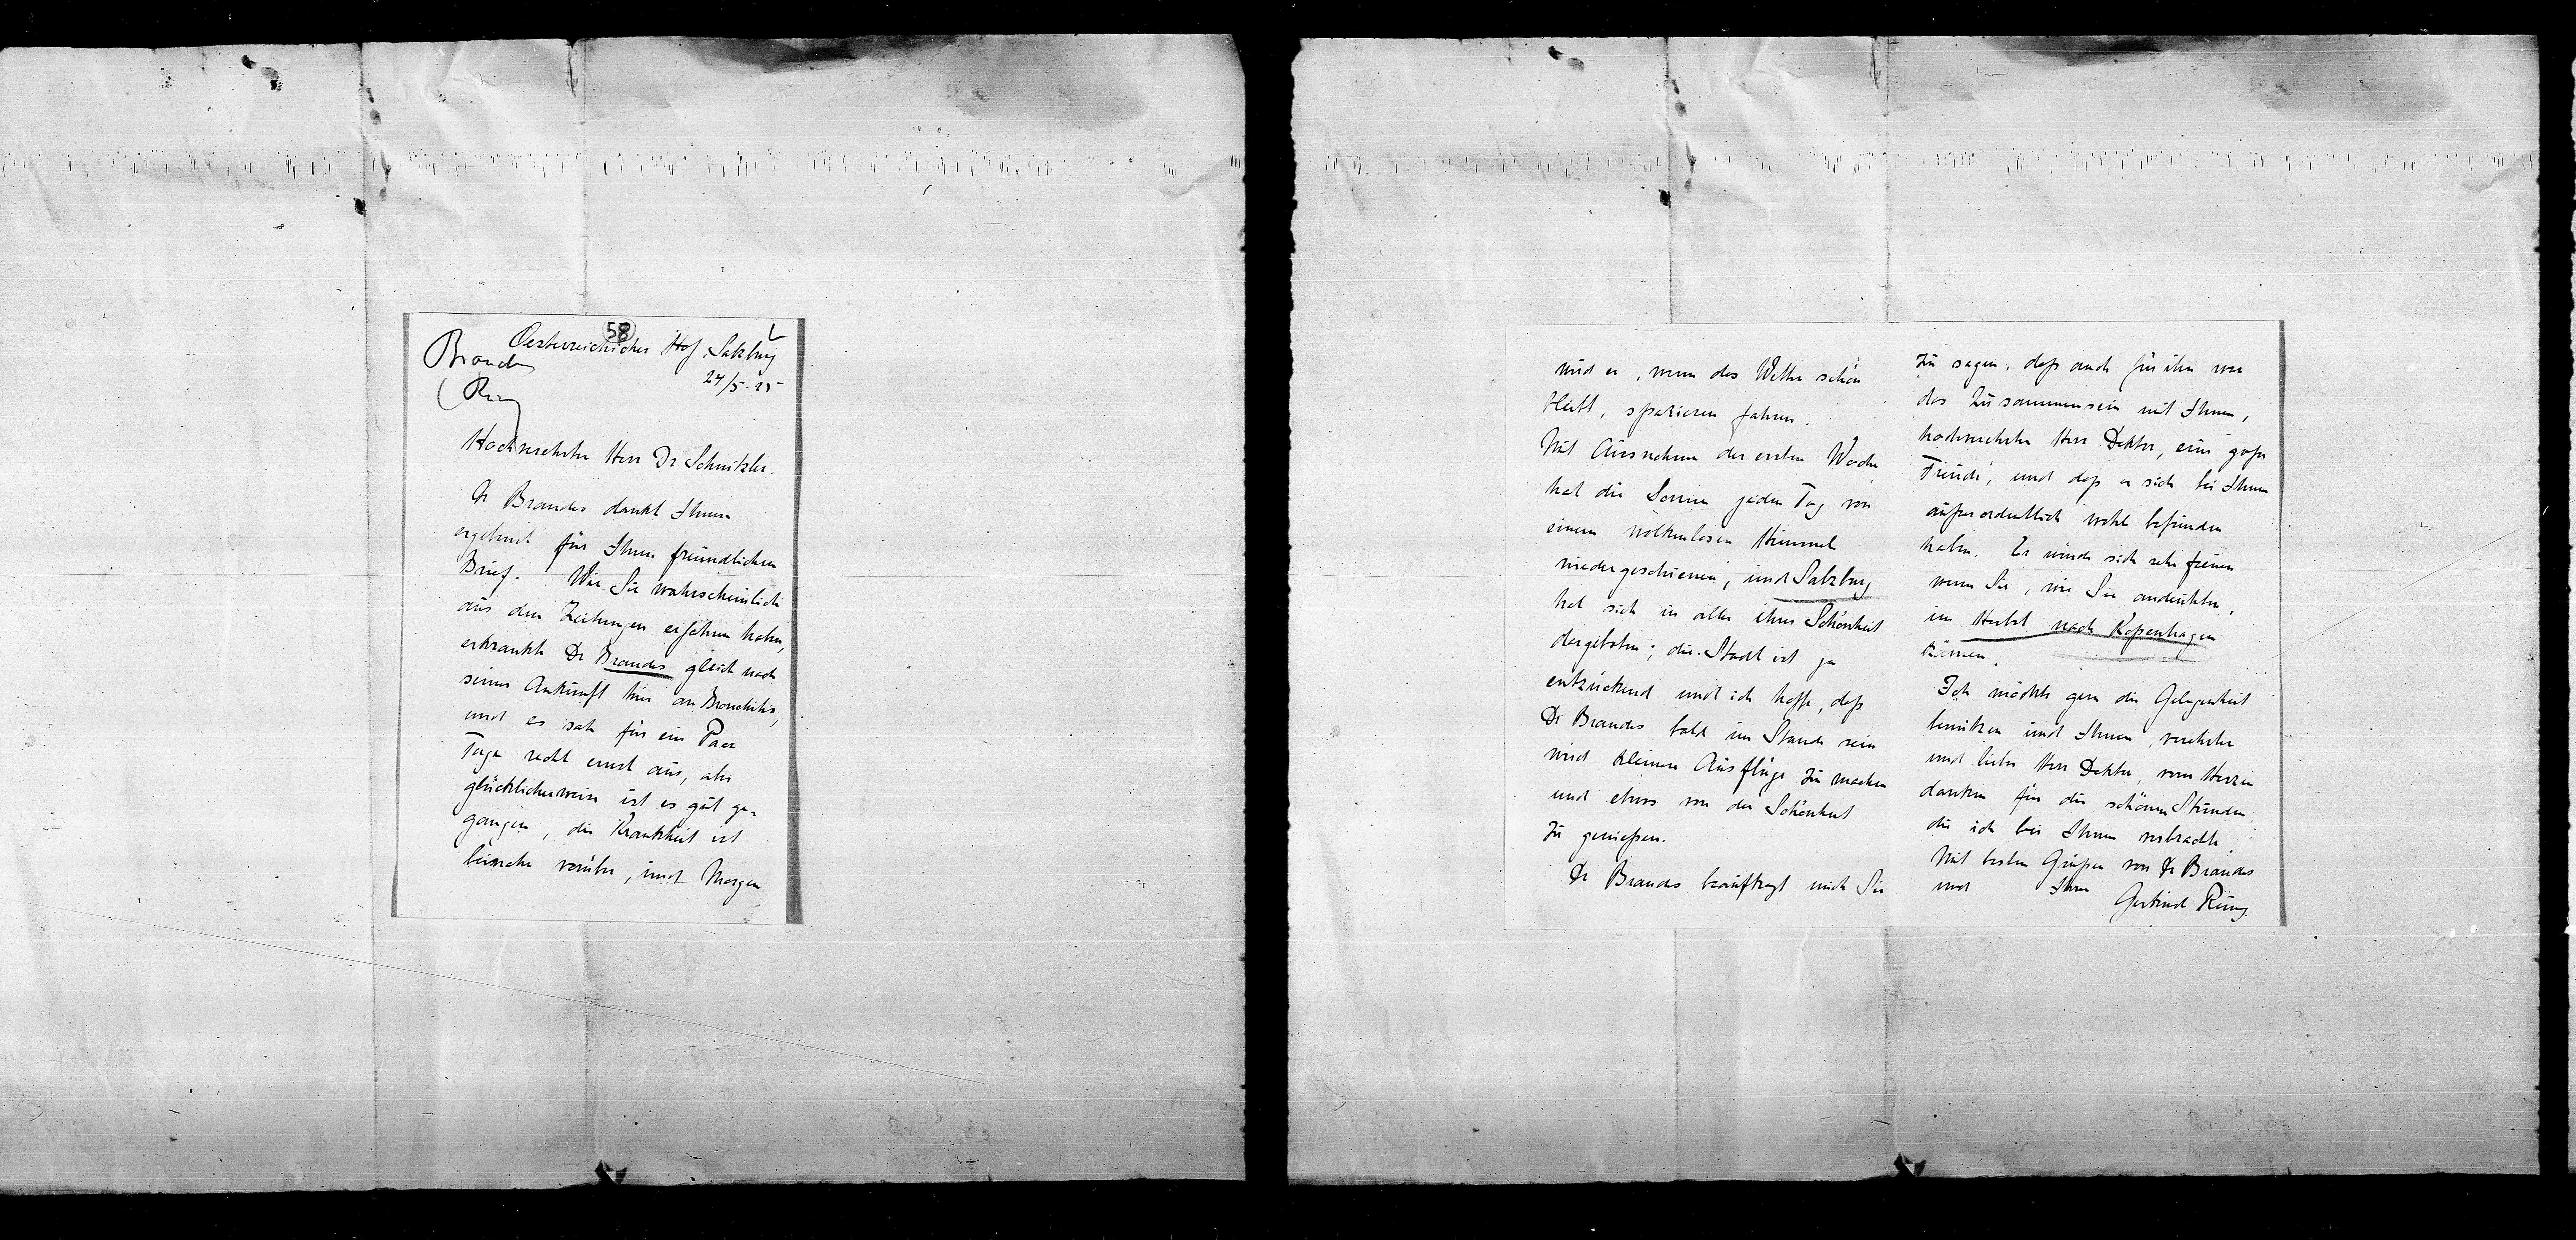 58
Oesterreichicher Hof, Salzburg
Brandes
24/5-25
(Rung
Hochverehrter Herr Dr Schnitzler.
Dr Brandes dankt Ihnen
ergebenst für Ihren freundlichen
Brief. Wie Sie wahrscheinlich
aus den Zeitungen erfahren haben,
erkrankte Dr Brandes gleich nach
seiner Ankunft hier an Bronchitis,
und es sah für ein Paar
Tage recht ernst aus, aber
glücklicherweise ist es gut ge-
gangen, die Krankheit ist
beinahe vorüber, und Morgen
wird er, wenn das Wetter schön
bleibt, spazieren fahren.
Mit Ausnahme der ersten Woche
hat die Sonne jeden Tag von
einem wolkenlosen Himmel
niedergeschienen, und Salzburg
hat sich in aller ihrer Schönheit
dargeboten; die Stadt ist ja
entzückend und ich hoffe, dass
Dr Brandes bald im Stande sein
wird kleinere Ausflüge zu machen
und etwas von der Schönheit
zu geniessen.
Dr Brandes beauftragt mich Sie
zu sagen, dass auch für ihn war
das Zusammensein mit Ihnen,
hochverehrter Herr Doktor, eine grosse
Freude, und dass er sich bei Ihnen
ausserordentlich wohl befunden
habe. Er würde sich sehr freuen
wenn Sie, wie Sie andeuteten,
im Herbst nach Kopenhagen
kämen.
Ich möchte gern die Gelegenheit
benützen und Ihnen, verehrter
und lieber Herr Doktor, vom Herzen
danken für die schönen Stunden
die ich bei Ihnen verbrachte.
Mit besten Grüssen von Dr Brandes
und Ihrer
Gertrud Rung.